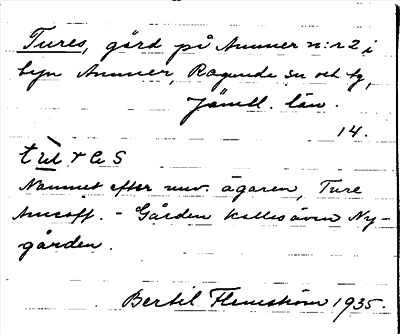 Tures, gård på Ammer n:r 2 i
byn Ammer, Ragunda sn och tg,
Jämtl. län.
14.
turas
Namnet efter nuv. ägaren, Ture
– Gården kallas även Ny-
gården.
Bertil Flemström 1935.